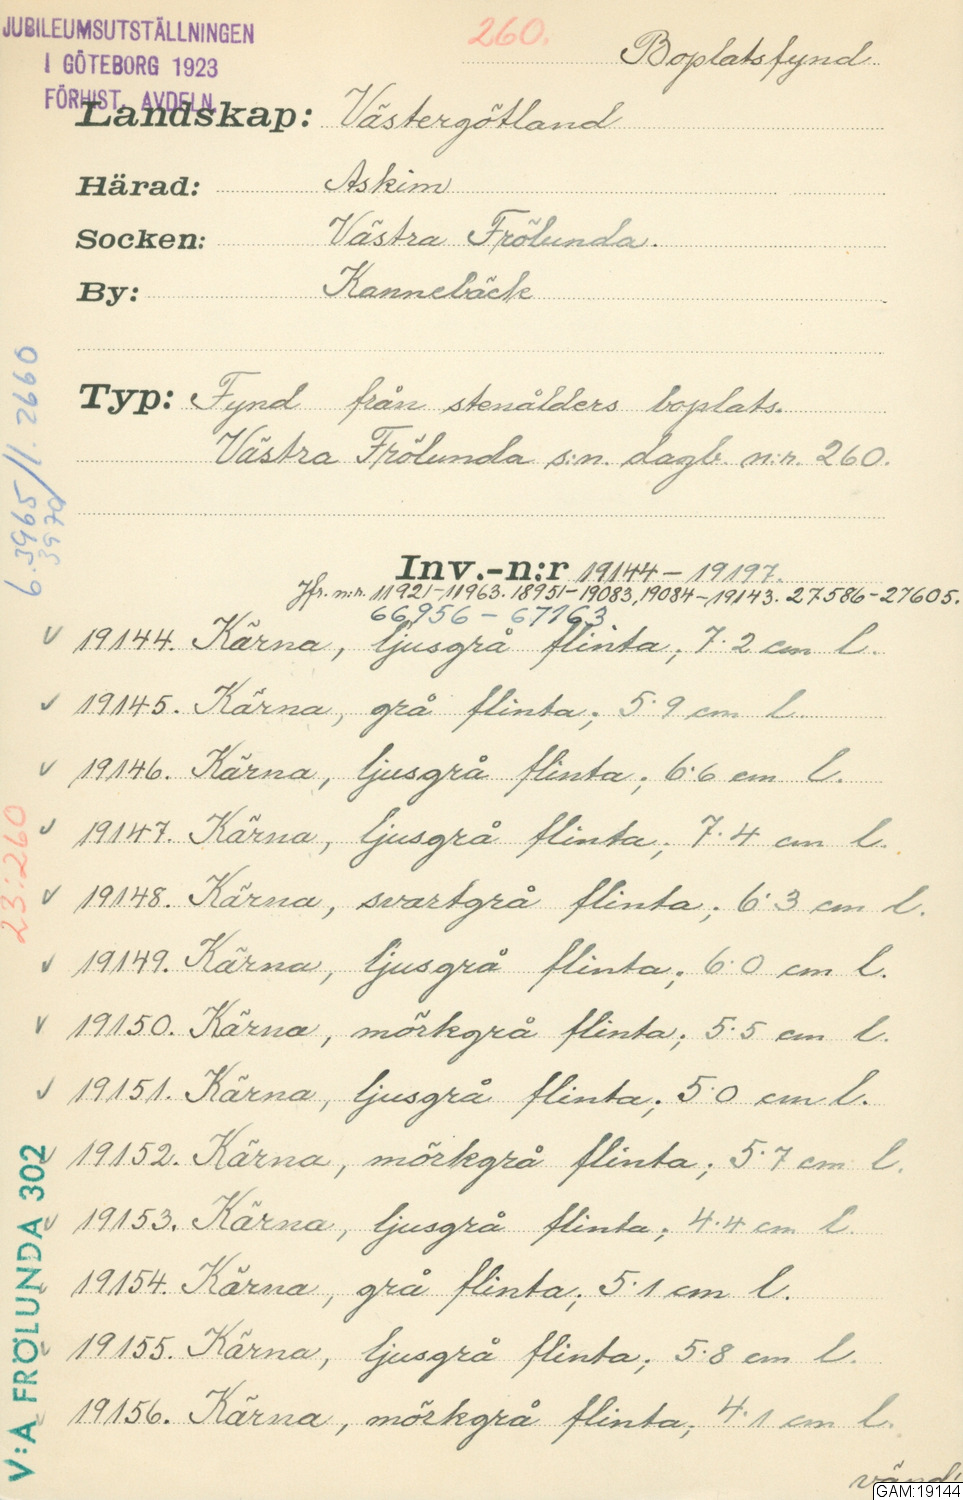 JUBILEUMSUTSTÄLLNINGEN
I GÖTEBORG 1923
FÖRHIST. AVDELN.
260.
Boplatsfynd
Landskap: Västergötland
Härad: Askim
Socken: Västra Frölunda.
By: Kannebäck
Typ: Fynd från stenålders boplats.
Västra Frölunda s:n. dagb. n:r. 260.
Inv.-n:r 19144 – 19197.
Jfr. n:r. 11921–11963. 18951–19083, 19084–19143. 27586–27605.
66956 – 67163
19144. Kärna, ljusgrå flinta; 7.2 cm l.
19145. Kärna, grå flinta; 5.9 cm l.
19146. Kärna, ljusgrå flinta; 6.6 cm l.
19147. Kärna, ljusgrå flinta; 7.4 cm l.
19148. Kärna, svartgrå flinta; 6.3 cm l.
19149. Kärna, ljusgrå flinta; 6.0 cm l.
19150. Kärna, mörkgrå flinta; 5.5 cm l.
19151. Kärna, ljusgrå flinta; 5.0 cm l.
19152. Kärna, mörkgrå flinta; 5.7 cm l.
19153. Kärna, ljusgrå flinta; 4.4 cm l.
19154. Kärna, grå flinta; 5.1 cm l.
19155. Kärna, ljusgrå flinta; 5.8 cm l.
19156. Kärna, mörkgrå flinta; 4.1 cm l.
vänd!
6.3965/1.2660
3970
23:260
V:A FRÖLUNDA 302
GAM:19144